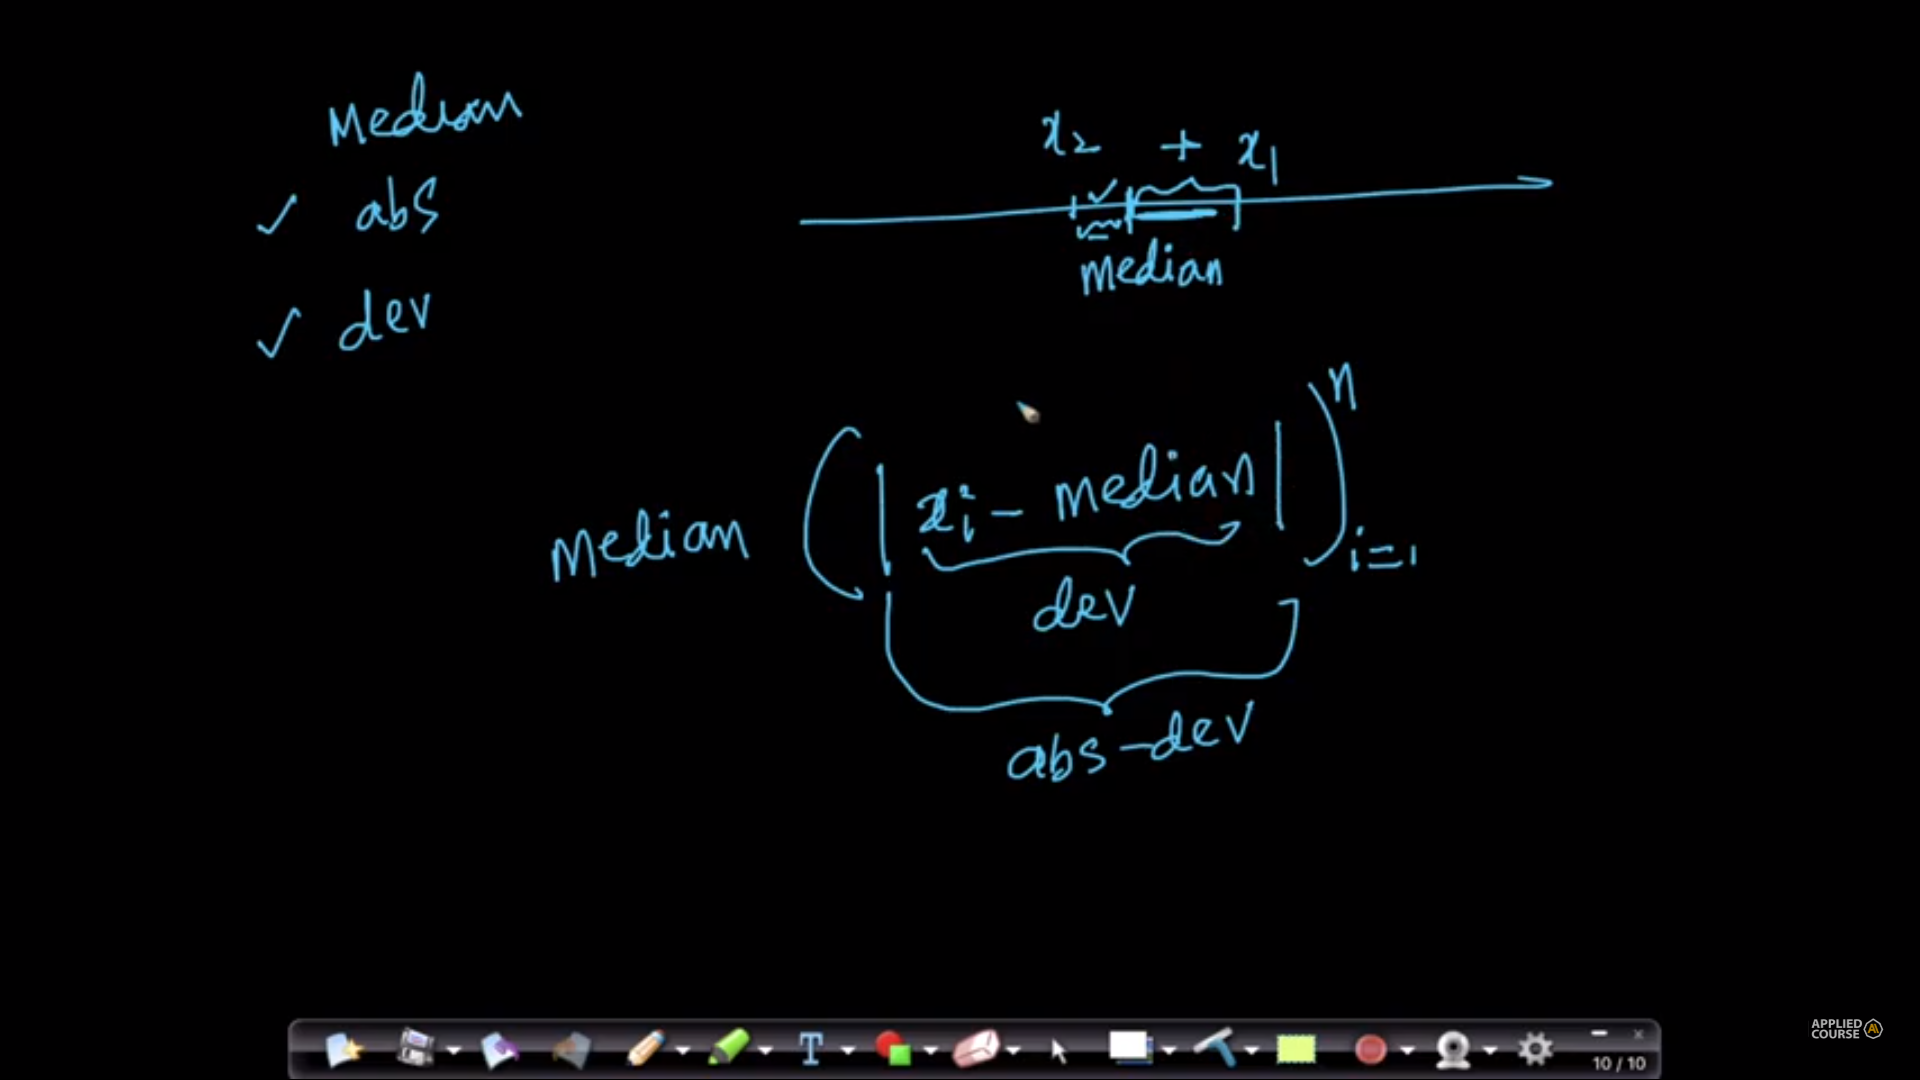 Median
abs
dev
x₂ + x₁
median
median (|xᵢ - median|)ⁿᵢ₌₁
dev
abs-dev
T
10 / 10
APPLIED
COURSE